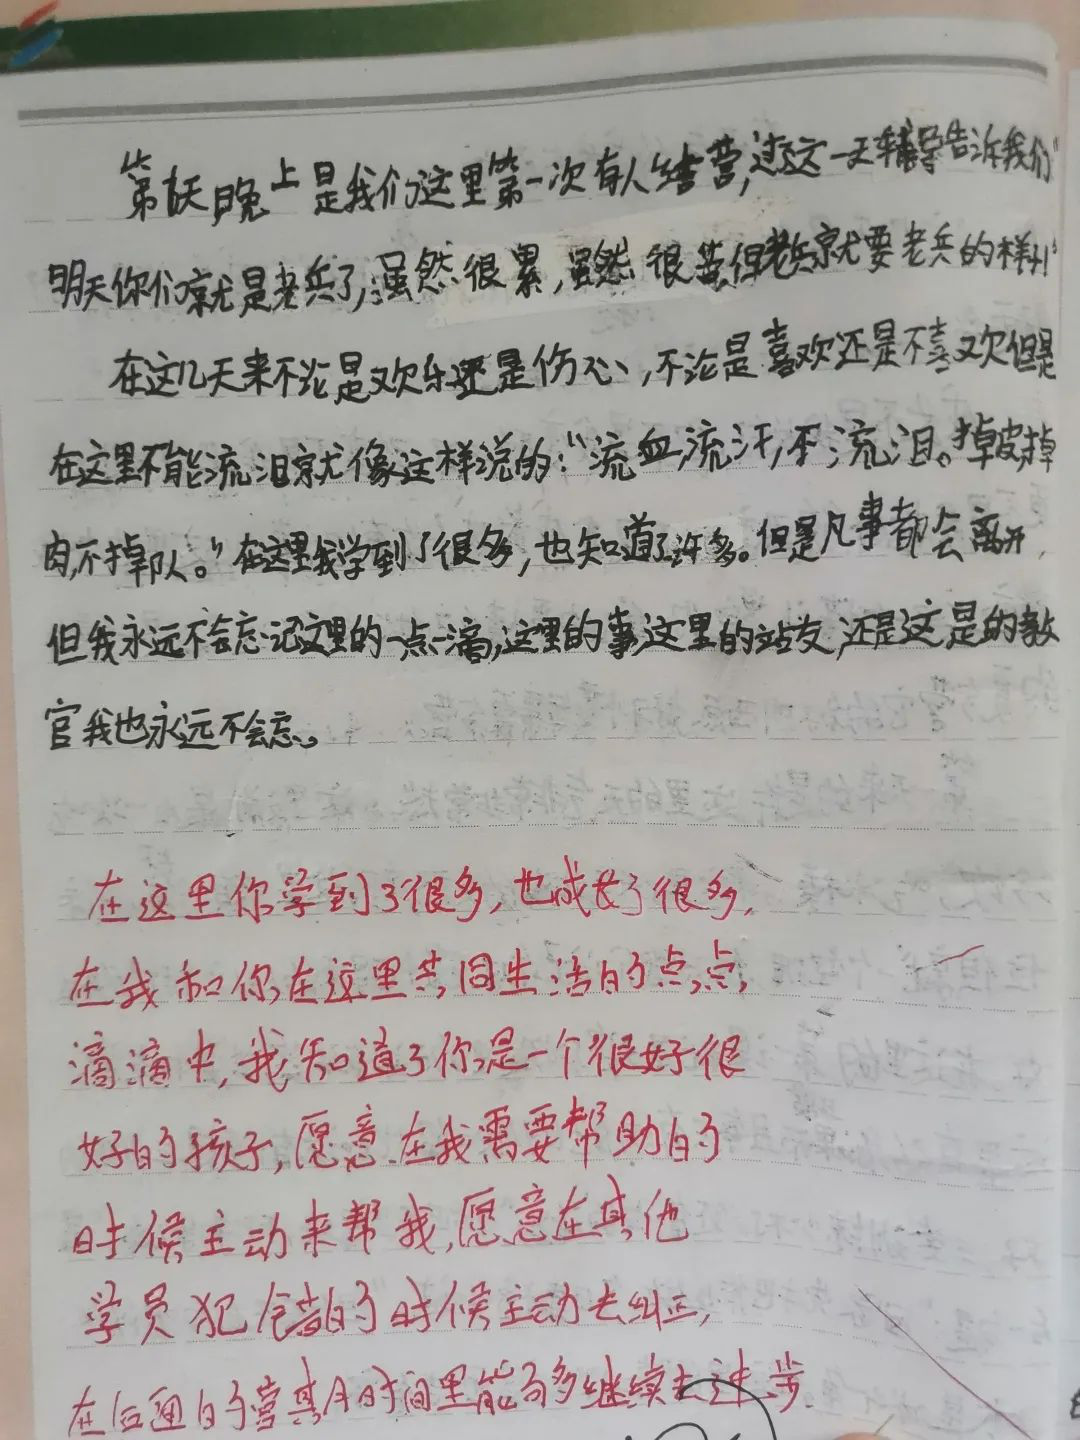 第七天晚上是我们这里第一次有人结营,过了这一天辅导告诉我们“
明天你们就是老兵了,虽然很累,虽然很苦,但老兵就要老兵的样儿”
在这几天来不论是欢乐还是伤心,不论是喜欢还是不喜欢但是
在这里不能流泪就像这样说的:“流血,流汗,不流泪。掉皮,掉
肉,不掉队。”在这里我学到了很多,也知道了许多。但是凡事都会离开,
但我永远不会忘记这里的一点一滴,这里的事,这里的站友,还是这是的教
官我也永远不会忘。
在这里你学到了很多,也成长了很多,
在我和你在这里共同生活的点点
滴滴中,我知道了你是一个很好很
好的孩子,愿意在我需要帮助的
时候主动来帮我,愿意在其他
学员犯错的时候主动去纠正,
在后面的营期时间里能够多继续去进步.